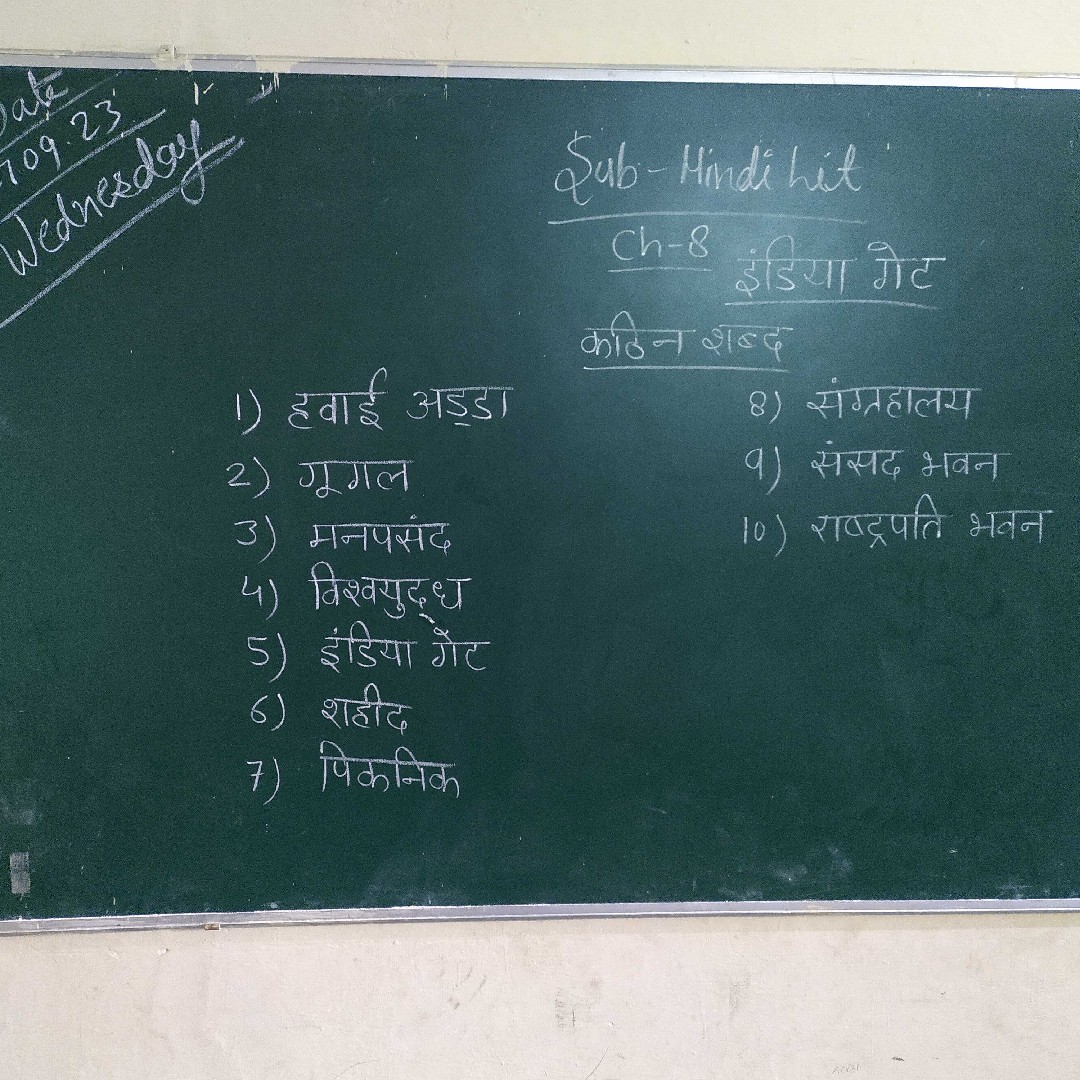 Date
709.23
Wednesday
Sub-Hindi Lit
Ch-8 इंडिया गेट
कठिन शब्द
1) हवाई अड्डा
2) गूगल
3) मनपसंद
4) विश्वयुद्ध
5) इंडिया गेट
6) शहीद
7) पिकनिक
8) संग्रहालय
9) संसद भवन
10) राष्ट्रपति भवन